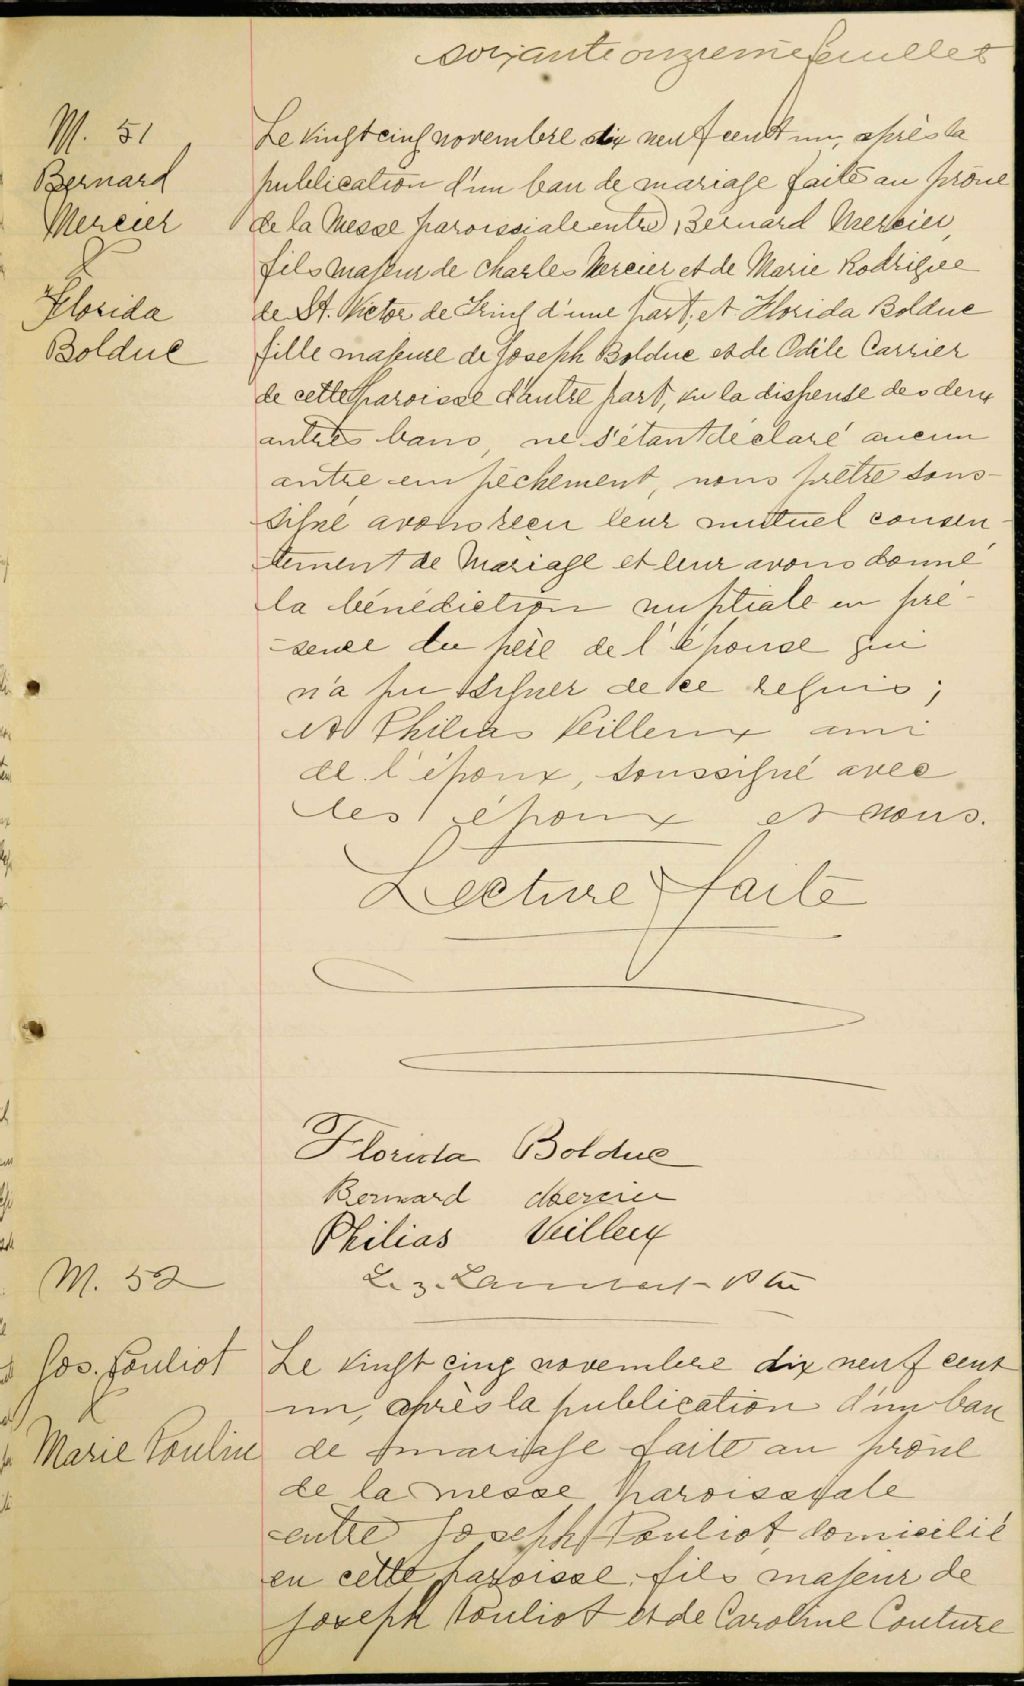 soixante onzieme feuillet
M. 51
Bernard
Mercier
&
Florida
Bolduc
Le vingt cinq novembre dix neuf cent un, après la
publication d'un ban de mariage faite au prône
de la Messe paroissiale entre Bernard Mercier,
fils majeur de Charles Mercier et de Marie Rodrigue
de St. Victor de Tring d'une part, et Florida Bolduc
fille majeure de Joseph Bolduc et de Odile Carrier
de cette paroisse d'autre part, vu la dispense des deux
autres bans, ne s'étant déclaré aucun
autre empêchement, nous prêtre sous-
signé avons reçu leur mutuel consen-
tement de Mariage et leur avons donné
la bénédiction nuptiale en pré-
-sence du père de l'épouse qui
n'a pu signer de ce requis;
et Philias Veilleux ami
de l'époux, soussigné avec
les époux et nous.
Lecture faite
Florida Bolduc
Bernard Mercier
Philias Veilleux
L. z. Lambert Ptre
M. 52
Jos. Pouliot
&
Marie Poulin
Le vingt cinq novembre dix neuf cent
un, après la publication d'un ban
de mariage faite au prône
de la messe paroissiale
entre Joseph Pouliot, domicilié
en cette paroisse, fils majeur de
Joseph Pouliot et de Caroline Couture